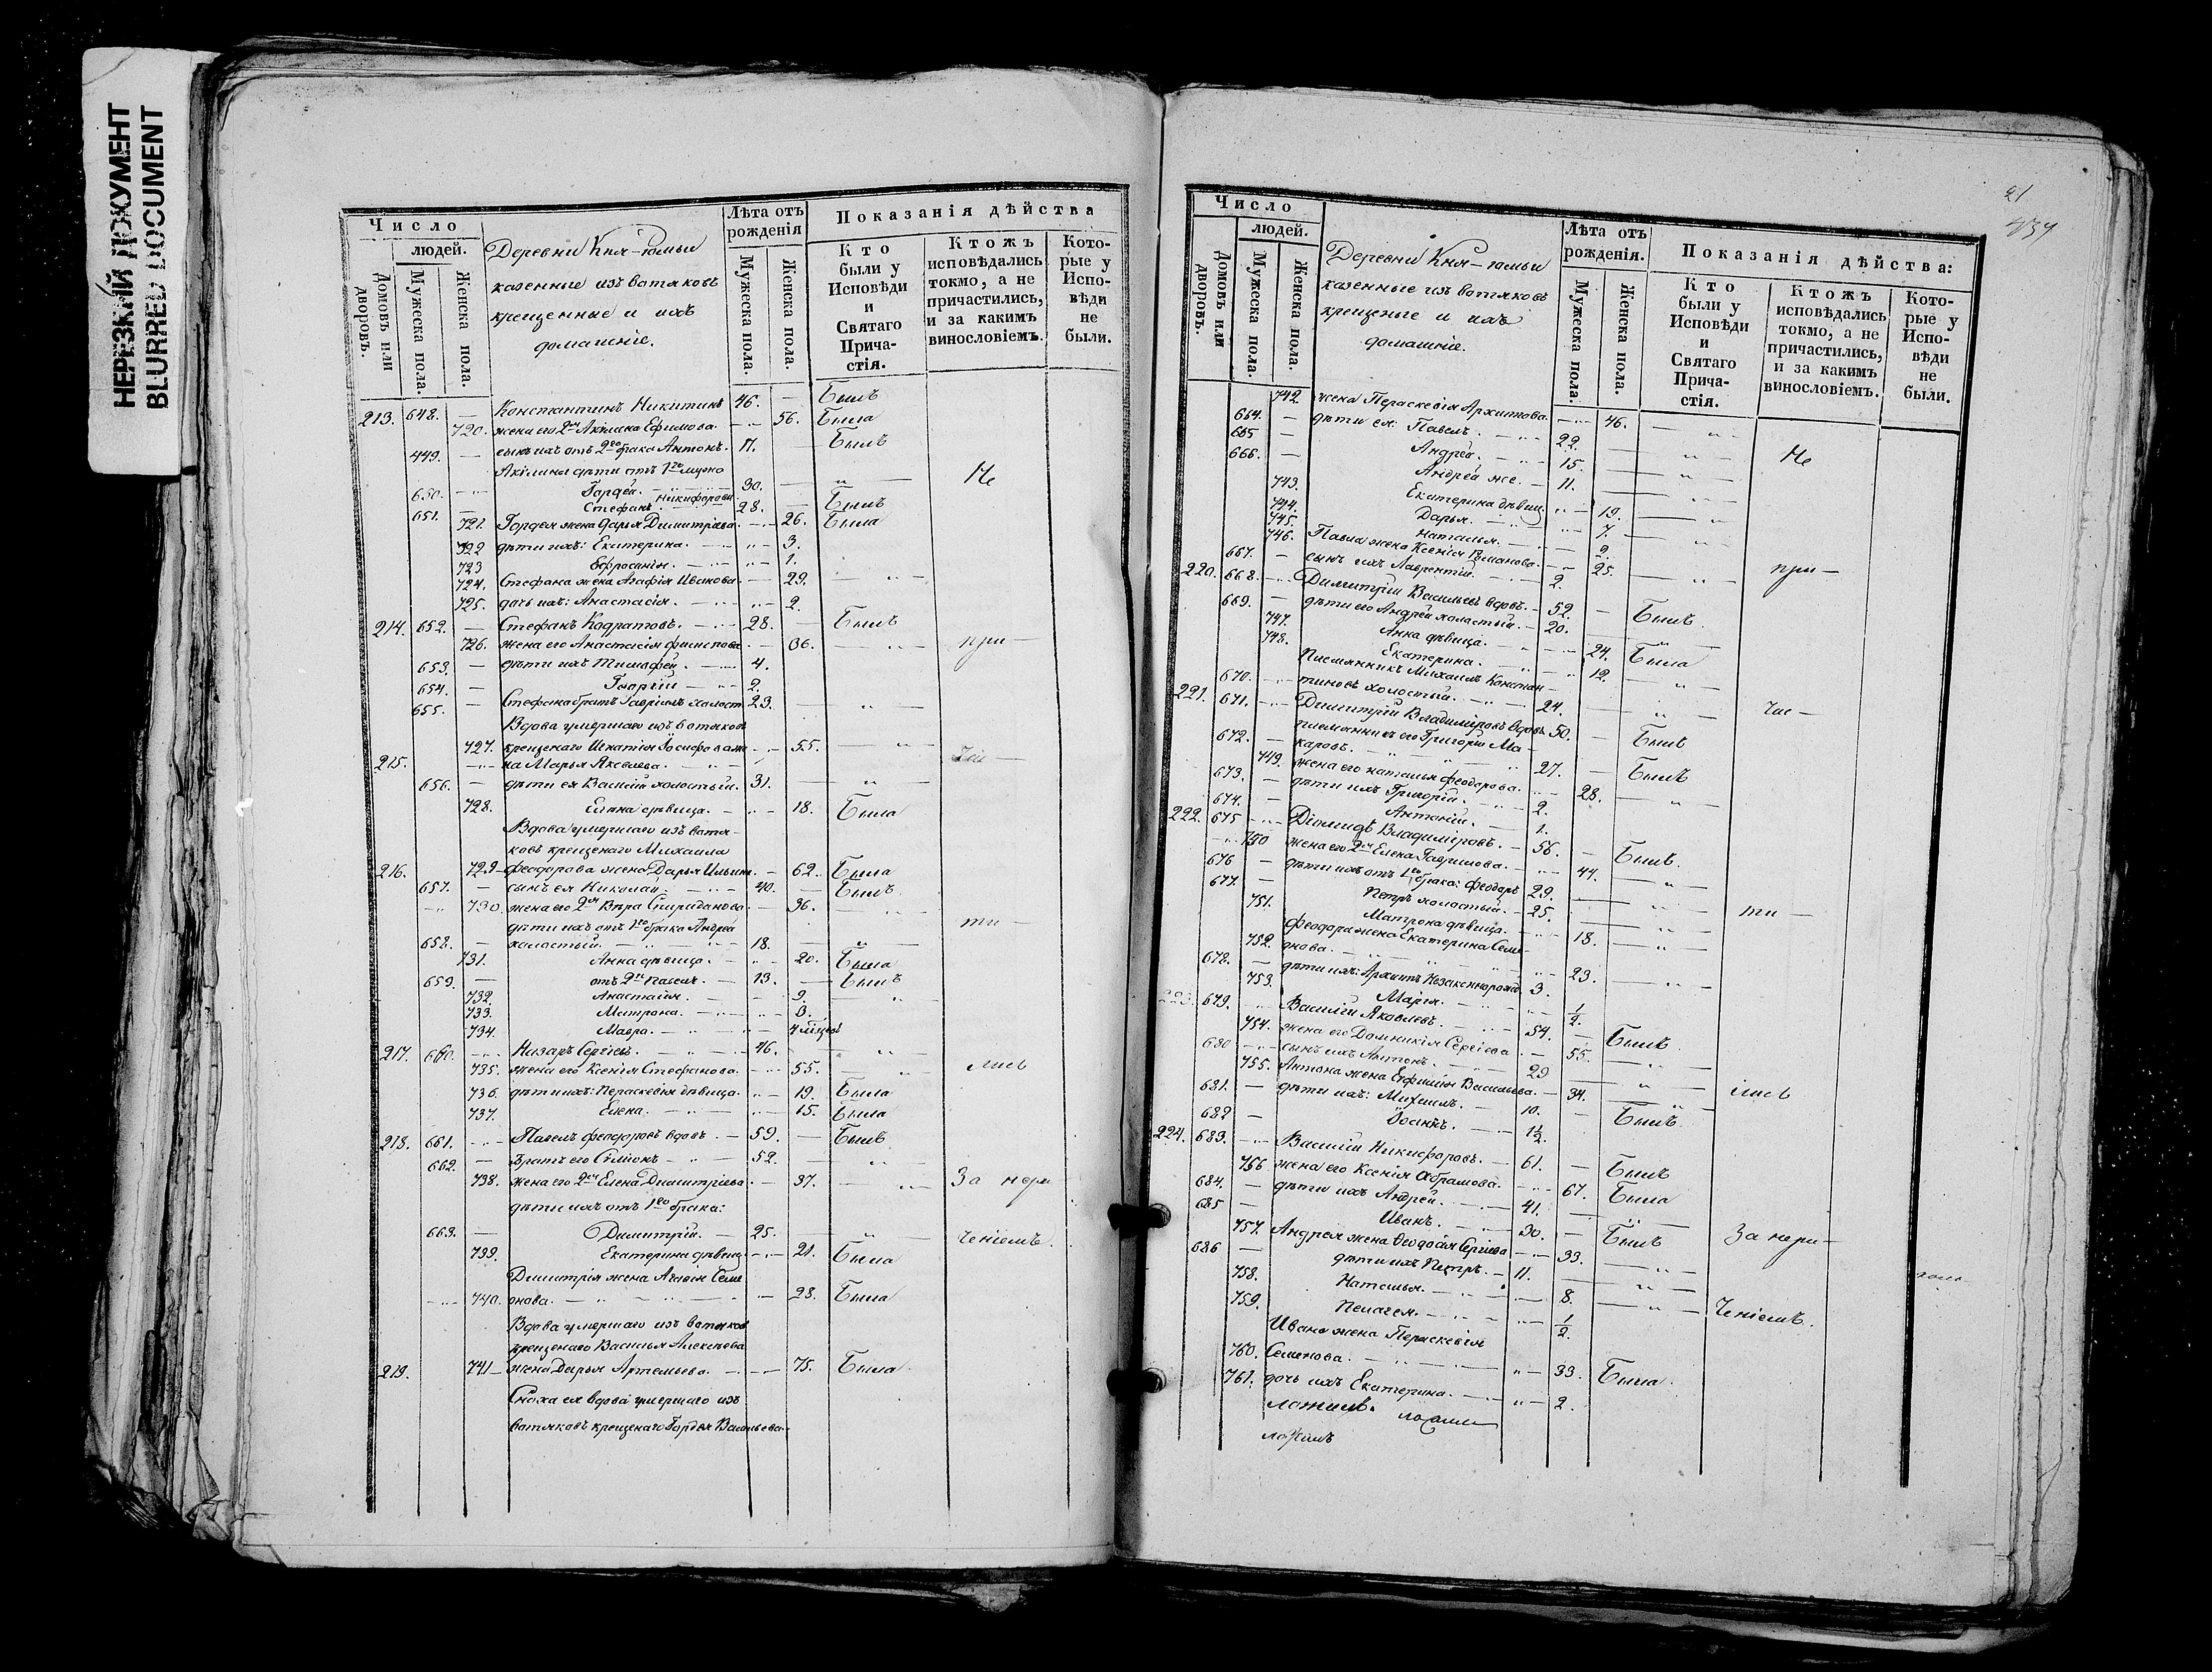 НЕРЕЗКИЙ ДОКУМЕНТ
BLURRED DOCUMENT
Число
людей.
Домовъ или дворовъ.
Мужеска пола.
Женска пола.
Деревни Кня-юмьи
казенные изъ вотяковъ
крещенные и ихъ
домашніе.
Лѣта отъ рожденія
Мужеска пола.
Женска пола.
Показанія дѣйства
Кто были у Исповѣди и Святаго Прича-стія.
Ктожъ исповѣдались токмо, а не причастились, и за какимъ винословіемъ.
Кото-рые у Испо-вѣди не были.
213. 648. — Константинъ Никитинъ 46. — Былъ
720. жена его 2мъ Акилина Ефимова. — 56. Была
449. — сынъ ихъ отъ 2го брака Антонъ. 17. — Былъ
Акилины дѣти отъ 1го мужа
650. Гордей. 30. — „ — Не
651. Стефанъ Никифоровы 28. — Былъ
721. Гордея жена Дарья Димитріева. — 26. Была
722 дѣти ихъ: Екатерина. — 3.
723 Ефросинія. — 1.
724. Стефана жена Агафія Иванова. — 29. — „ —
725. дочь ихъ: Анастасія. — 2.
214. 652. — Стефанъ Кодратовъ. — 28. — Былъ
726. жена его Анастасія Филипова — 36. — „ — при —
653. — дѣти ихъ Тимофей. — 4.
654. — Георгій — 2.
655. — Стефана братъ Гавріилъ холост 23. — „ —
Вдова умершаго изъ вотяковъ
727. крещенаго Игнатія Іосифова же — 55. — „ —
215. на Марья Яковлева. — час —
656. — дѣти ея Василій холостый. 31. — „ —
728. Елена дѣвица. — 18. Была
Вдова умершаго изъ вотя-
ковъ крещенаго Михаила
216. 729 — Феодорова жена Дарья Ильина. — 62. Была
657. — сынъ ея Николай. — 40. — Былъ
730. жена его 2мъ Вѣра Спиридонова — 36. — „ — ти —
дѣти ихъ отъ 1го брака Андрей
658. — холостый. — 18. — „ —
731. Анна дѣвица. — 20. Была
659. — отъ 2го Павелъ. — 13. — Былъ
732. Анастасія. — 9. „
733. Матрона. —
734. Мавра. — 4 мѣсяц
217. 660. Назаръ Сергѣевъ. — 46. — „
735. жена его Ксенія Стефанова. — 55. — „ — лись
736. дѣти ихъ: Параскевія дѣвица. — 19. Была
737. Елена. — 15. Была
218. 661. Павелъ Феодоровъ вдовъ. — 59. — Былъ
662. — братъ его Симіонъ — 52. — „ —
738. жена его 2мъ Елена Димитріева — 37. — „ — За нера
дѣти ихъ отъ 1го брака:
663. — Димитрій. — 25. — „ — ченіемъ.
739. Екатерина дѣвиц. — 21. Была
Димитрія жена Агафія Семе
740. онова. — 28. Была
Вдова умершаго изъ вотяков
крещенаго Василья Алексѣева
219. 741 — жена Дарья Артемьева. — 75. Была
Сноха ея вдова умершаго изъ
вотяковъ крещенаго Гордея Васильева.
21
Число
людей.
Домовъ или дворовъ.
Мужеска пола.
Женска пола.
Деревни Кня-юмьи
казенные изъ вотяковъ
крещеные и ихъ
домашніе.
Лѣта отъ рожденія.
Мужеска пола.
Женска пола.
Показанія дѣйства:
Кто были у Исповѣди и Святаго Прича-стія.
Ктожъ исповѣдались токмо, а не причастились, и за какимъ винословіемъ.
Кото-рые у Испо-вѣди не были.
742. жена Пераскевія Архипова. — 46. — „ —
664. — дѣти ея: Павелъ. — 22. — „ — Не
665 — Андрей. — 15. — „ —
666. — Андрей же. — 11. — „ —
743. Екатерина дѣвиц. — 19. — „ —
744. Дарья. — 7. — „ —
745. Наталья. — 2.
746. Павла жена Ксенія Романова. — 25. — „ — при —
667. — сынъ ихъ Лаврентій. — 2.
220. 668. Димитрій Васильевъ вдовъ. — 52. — Былъ
669. — дѣти его Андрей холостый. — 20. — „ —
747. Анна дѣвица. — 24. Была
748. Екатерина. — 12. — „ —
Племянникъ Михаилъ Констан-
670. тиновъ холостый. — 24. — „ — час —
221. 671. Димитрій Владиміровъ вдовъ 50. — Былъ
племянникъ его Григорій Ма-
672. — каровъ. — 27. — Былъ
749. жена его Наталья Феодорова. — 28. — „ —
673. — дѣти ихъ Григорій. — 2.
674. — Антоній. — 1.
222. 675 Діомидъ Владиміровъ. — 56. — Былъ.
750 жена его 2мъ Елена Гаврилова. — 44. — „ —
676 — дѣти ихъ отъ 1го брака: Феодоръ 29. — „ —
677. — Петръ холостый. — 25. — „ — ти —
751. Матрона дѣвица. — 18. — „ —
Феодора жена Екатерина Семе-
752. онова. — 23. — „ —
678. — дѣти ихъ: Архипъ Незаконнорожд 3.
753. Марія. — 1/2.
223. 679. Василій Яковлевъ. — 54. — Былъ
754. жена его Домникія Сергіева. — 55. — „ —
680 сынъ ихъ Антонъ. — 29 — „ —
755. Антона жена Евфимія Васильева. — 34. — „ — лись
681. — дѣти ихъ: Михаилъ. — 10. — Былъ
682 — Іоаннъ. — 1 1/2.
224. 683. Василій Никифоровъ. — 61. — Былъ
756 жена его Ксенія Абрамова. — 67. Была
684. — дѣти ихъ Андрей. — 41. — „ —
685 — Иванъ. — 30. — Былъ За нера —
757. Андрея жена Феодосія Сергіева — 33. — „ —
686 — дѣти ихъ Петръ. — 11. — „ —
758. Наталья. — 8. — „ — ченіемъ.
759. Пелагея. — 1/2.
Ивана жена Пераскевія
760. Семенова. — 33. Была.
761. дочь ихъ Екатерина. — 2.